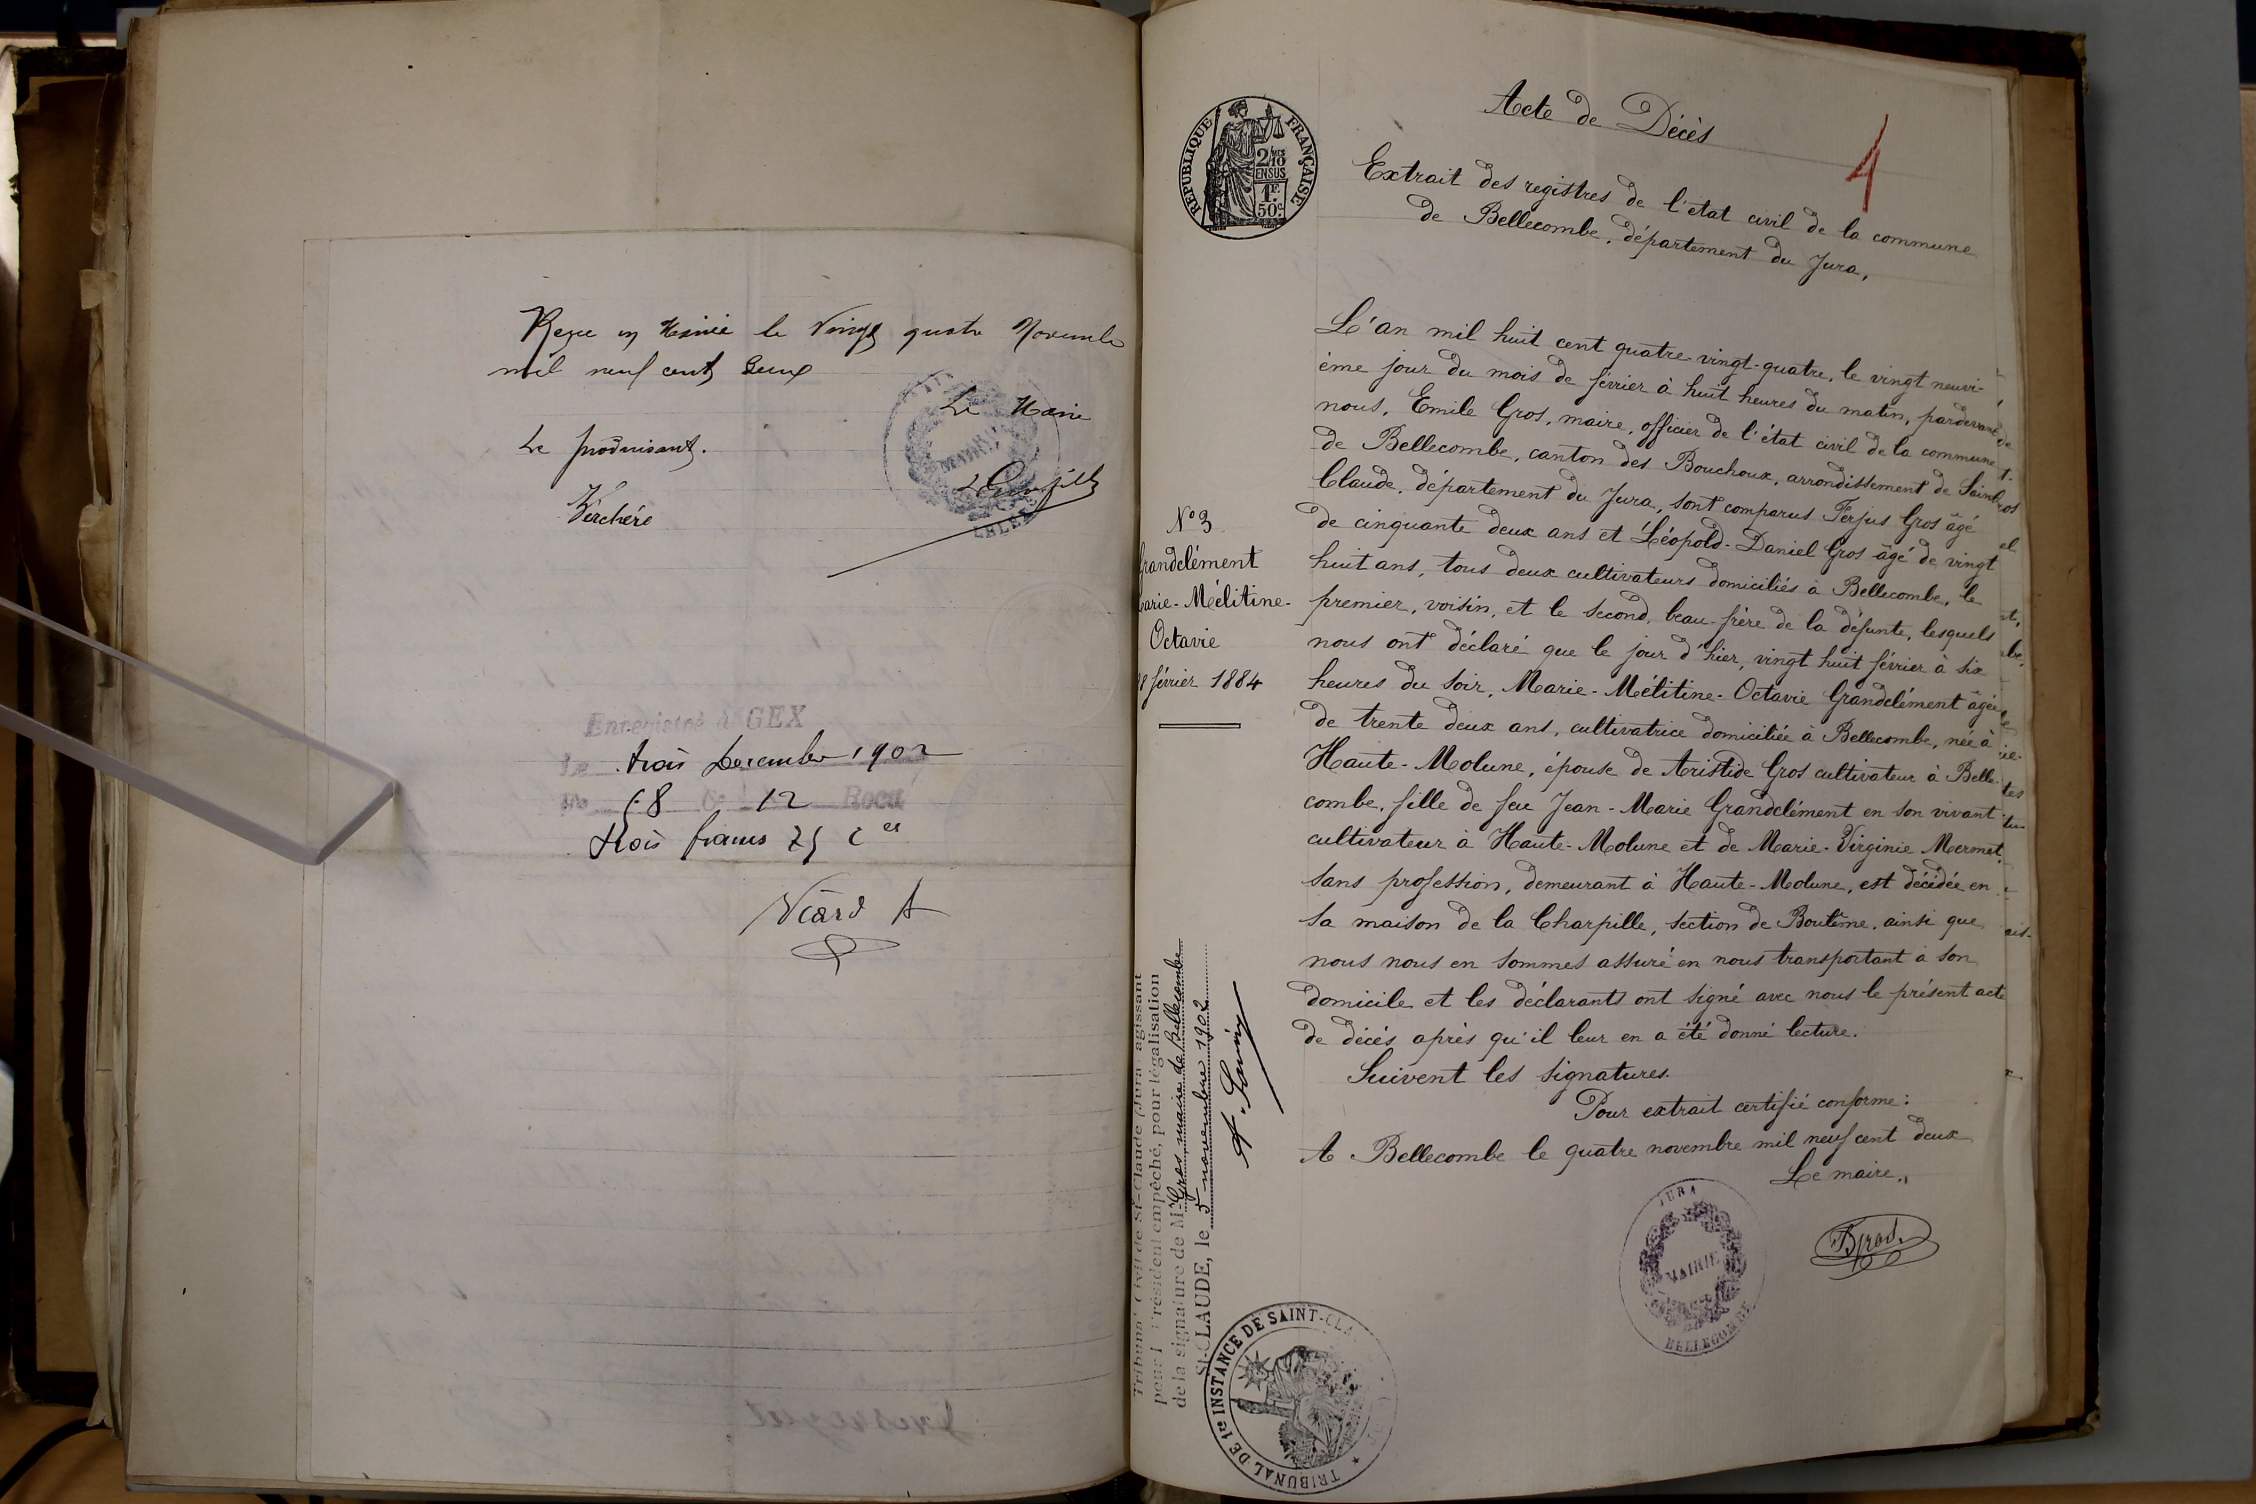 Reçu en Mairie le Vingt quatre Novembre
mil neuf cent deux
Le Maire
Le produisant.
Verchère
MAIRIE
Enregistré à GEX
Le trois Décembre 1902
68 12 Reçu
trois francs 75 c es
RÉPUBLIQUE FRANÇAISE
2/10
EN SUS
1F.
50c.
Acte de Décès
1
Extrait des registres de l'état civil de la commune
de Bellecombe, département du Jura,
L'an mil huit cent quatre-vingt-quatre, le vingt neuvi-
ème jour du mois de février à huit heures du matin, pardevant
nous, Emile Gros, maire, officier de l'état civil de la commune
de Bellecombe, canton des Bouchoux, arrondissement de Saint
Claude, département du Jura, sont comparus Ferjus Gros âgé
de cinquante deux ans et Léopold-Daniel Gros âgé de vingt
huit ans, tous deux cultivateurs domiciliés à Bellecombe, le
premier, voisin, et le second, beau-frère de la défunte, lesquels
nous ont déclaré que le jour d'hier, vingt huit février à six
heures du soir, Marie-Mélitine-Octavie Grandclément âgée
de trente deux ans, cultivatrice domiciliée à Bellecombe, née à
Haute-Molune, épouse de Aristide Gros cultivateur à Belle-
combe, fille de feu Jean-Marie Grandclément en son vivant
cultivateur à Haute-Molune et de Marie-Virginie Mermet,
sans profession, demeurant à Haute-Molune, est décédée en
sa maison de la Charpille, section de Boulême, ainsi que
nous nous en sommes assuré en nous transportant à son
domicile et les déclarants ont signé avec nous le présent acte
de décès après qu'il leur en a été donné lecture.
Suivent les signatures.
Pour extrait certifié conforme:
A Bellecombe le quatre novembre mil neuf cent deux
Le maire,
JURA
MAIRIE
BELLECOMBE
N° 3
Grandclément
Marie-Mélitine-
Octavie
28 février 1884
Tribunal Civil de St-Claude (Jura) agissant
pour l Président empêché, pour légalisation
de la signature de M. Gros, maire de Bellecombe
St-CLAUDE, le 5 novembre 1902
TRIBUNAL DE 1re INSTANCE DE SAINT-CLA